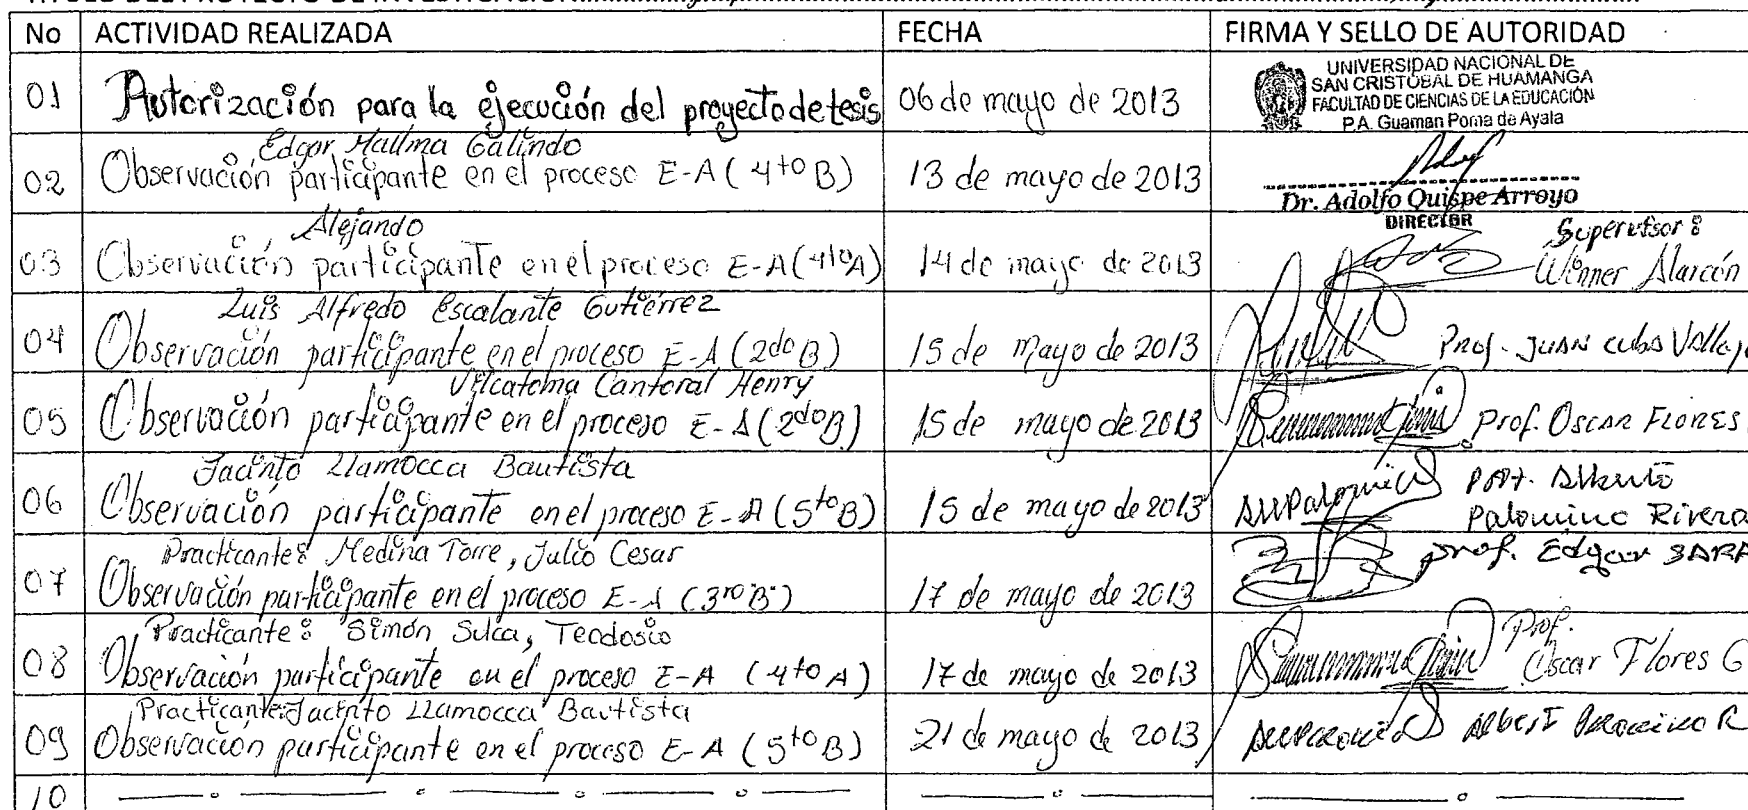 No ACTIVIDAD REALIZADA FECHA FIRMA Y SELLO DE AUTORIDAD
01 Autorización para la ejecución del proyecto de tesis 06 de mayo de 2013
UNIVERSIDAD NACIONAL DE
SAN CRISTÓBAL DE HUAMANGA
FACULTAD DE CIENCIAS DE LA EDUCACIÓN
P.A. Guaman Poma de Ayala
Edgar Galindo
02 Observación participante en el proceso E-A (4to B) 13 de mayo de 2013
Dr. Adolfo Quispe Arroyo
DIRECTOR
Alejando
03 Observación participante en el proceso E-A (4to A) 14 de mayo de 2013
Supervisor:
Winner Alarcón
Luis Alfredo Escalante Gutiérrez
04 Observación participante en el proceso E-A (2do B) 15 de mayo de 2013 Prof. JUAN
Vilcatoma Cantoral Henry
05 Observación participante en el proceso E-A (2do B) 15 de mayo de 2013 Prof. OSCAR FLORES
Jacinto Llamocca Bautista
06 Observación participante en el proceso E-A (5to B) 15 de mayo de 2013
Palomino Rivera
Practicante: Medina Torre, Julio Cesar
07 Observación participante en el proceso E-A (3ro B) 17 de mayo de 2013 prof. Edgar
Practicante: Simón Sulca, Teodosio
08 Observación participante en el proceso E-A (4to A) 17 de mayo de 2013
Prof.
Oscar Flores G
Practicante: Jacinto Llamocca Bautista
09 Observación participante en el proceso E-A (5to B) 21 de mayo de 2013
10